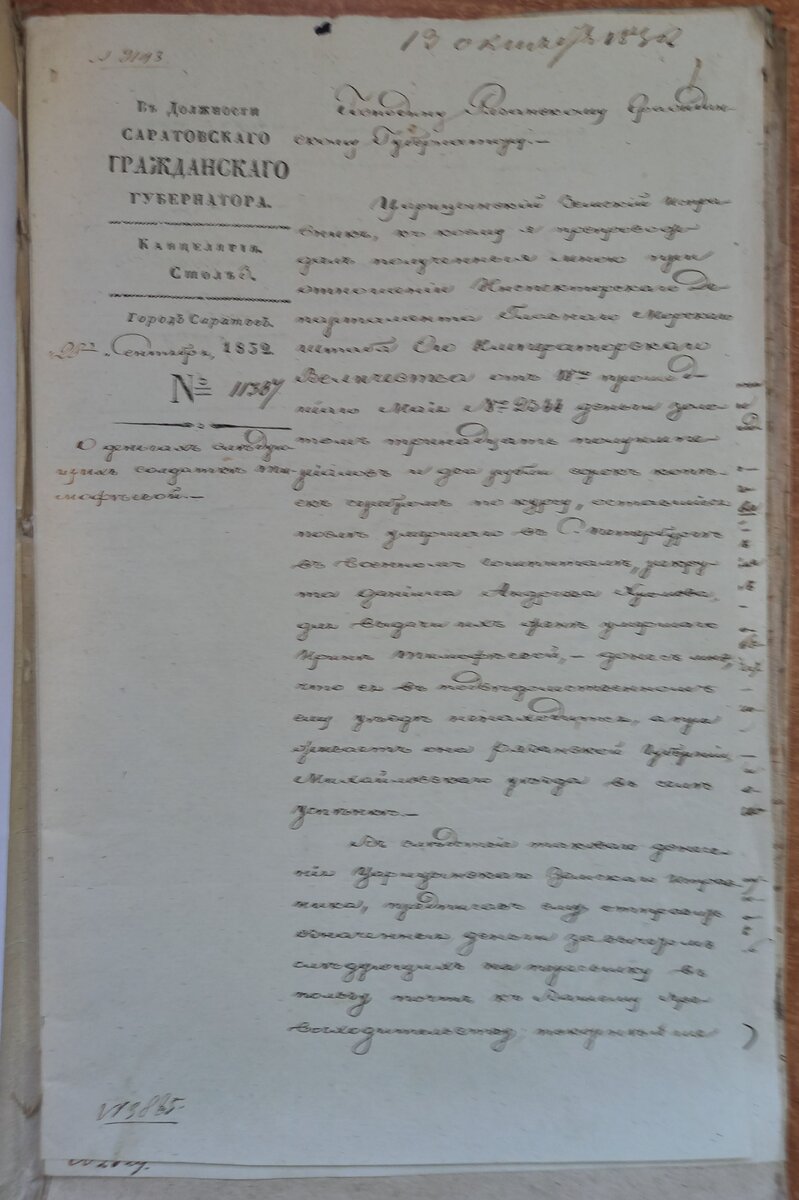 13 октября 1832
№ 9193
Въ Должности
САРАТОВСКАГО
ГРАЖДАНСКАГО
ГУБЕРНАТОРА.
Канцелярія.
Столъ 3.
Городъ Саратовъ.
Сентября, 1832
№ 11367
О деньгахъ слѣдую-
щихъ солдаткѣ Ти-
мофѣевой.—
Господину Рязанскому Граждан-
скому Губернатору.—
Царицынскій Земскій Испра-
вникъ, къ коему я препровож-
далъ полученныя мною при
отношеніи Инспекторскаго Де-
партамента Главнаго Морскаго
штаба Его Императорскаго
Величества отъ прошед-
шаго Мая № деньги золо-
томъ тринадцать полуимпе-
ріаловъ и два рубли сорокъ копѣ-
екъ серебромъ по курсу, оставшіяся
послѣ умершаго въ С. Петербургѣ
въ военномъ гошпиталѣ, рекру-
та Даніила Андреева
для выдачи ихъ женѣ умершаго
Иринѣ Тимофѣевой,— донесъ мнѣ,
что ея въ подвѣдомственномъ
ему уѣздѣ ненаходится, а про
живаетъ она Рязанской Губерніи,
Михайловскаго уѣзда въ селѣ
Въ слѣдствіе таковаго донесе-
нія Царицынскаго Земскаго Исправ-
ника, предписавъ ему отправить
означенныя деньги за вычетомъ
слѣдующихъ на пересылку въ
пользу почтъ къ Вашему Пре-
восходительству, покорнѣйше
№ 3885.